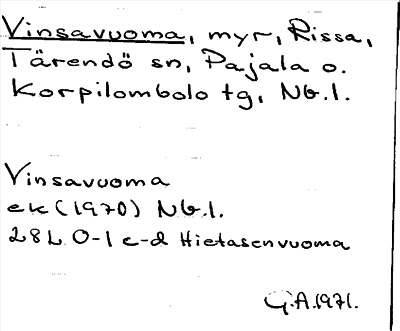 Vinsavuoma, myr, Rissa,
Tärendö sn, Pajala o.
Korpilombolo tg, Nb.l.
Vinsavuoma
ek (1970) Nb.l.
28L 0-1 c-d Hietasenvuoma
G.A.1971.